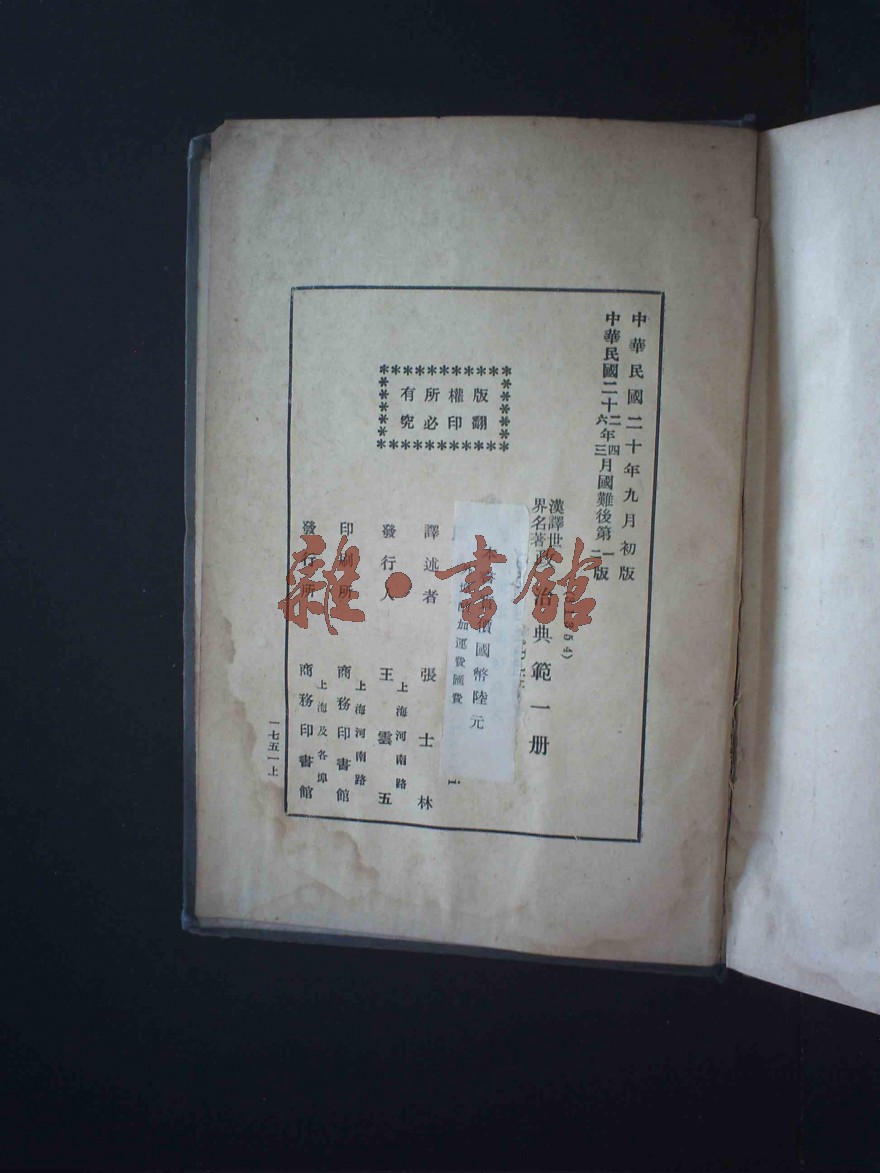 中華民國二十年九月初版
中華民國二十二年四月國難後第一版
六 三 二
漢譯世
界名著
政治典範一册
54)
本書實價國幣陸元
加運費匯費
譯述者 張士林
發行人 王雲五
上海河南路
印刷所 商務印書館
上海河南路
發行所 商務印書館
上海及各埠
版權所有
翻印必究
一七五一上
雜·書館